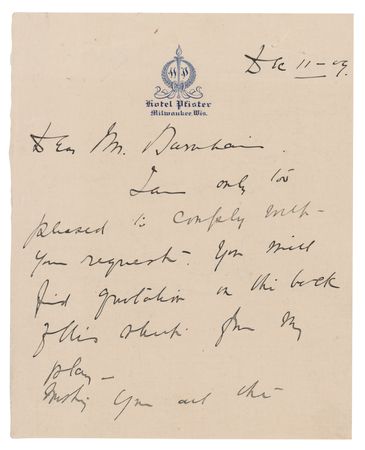 Dec 11-09.
HP
Hotel Pfister
Milwaukee, Wis.
Dear Mr. Barnhain.
I am only too
pleased to comply with
your request. You will
find quotation on the back
of this sheet from my
play—
Wishing you all the